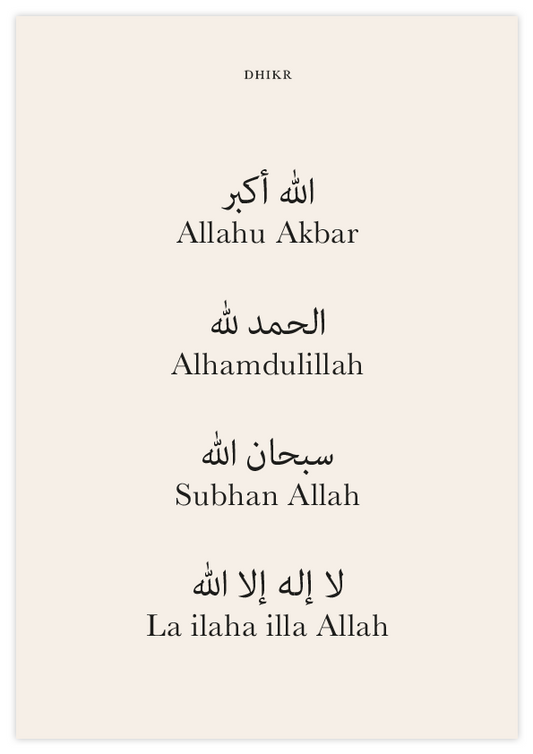 DHIKR
الله أكبر
Allahu Akbar
الحمد لله
Alhamdulillah
سبحان الله
Subhan Allah
لا إله إلا الله
La ilaha illa Allah